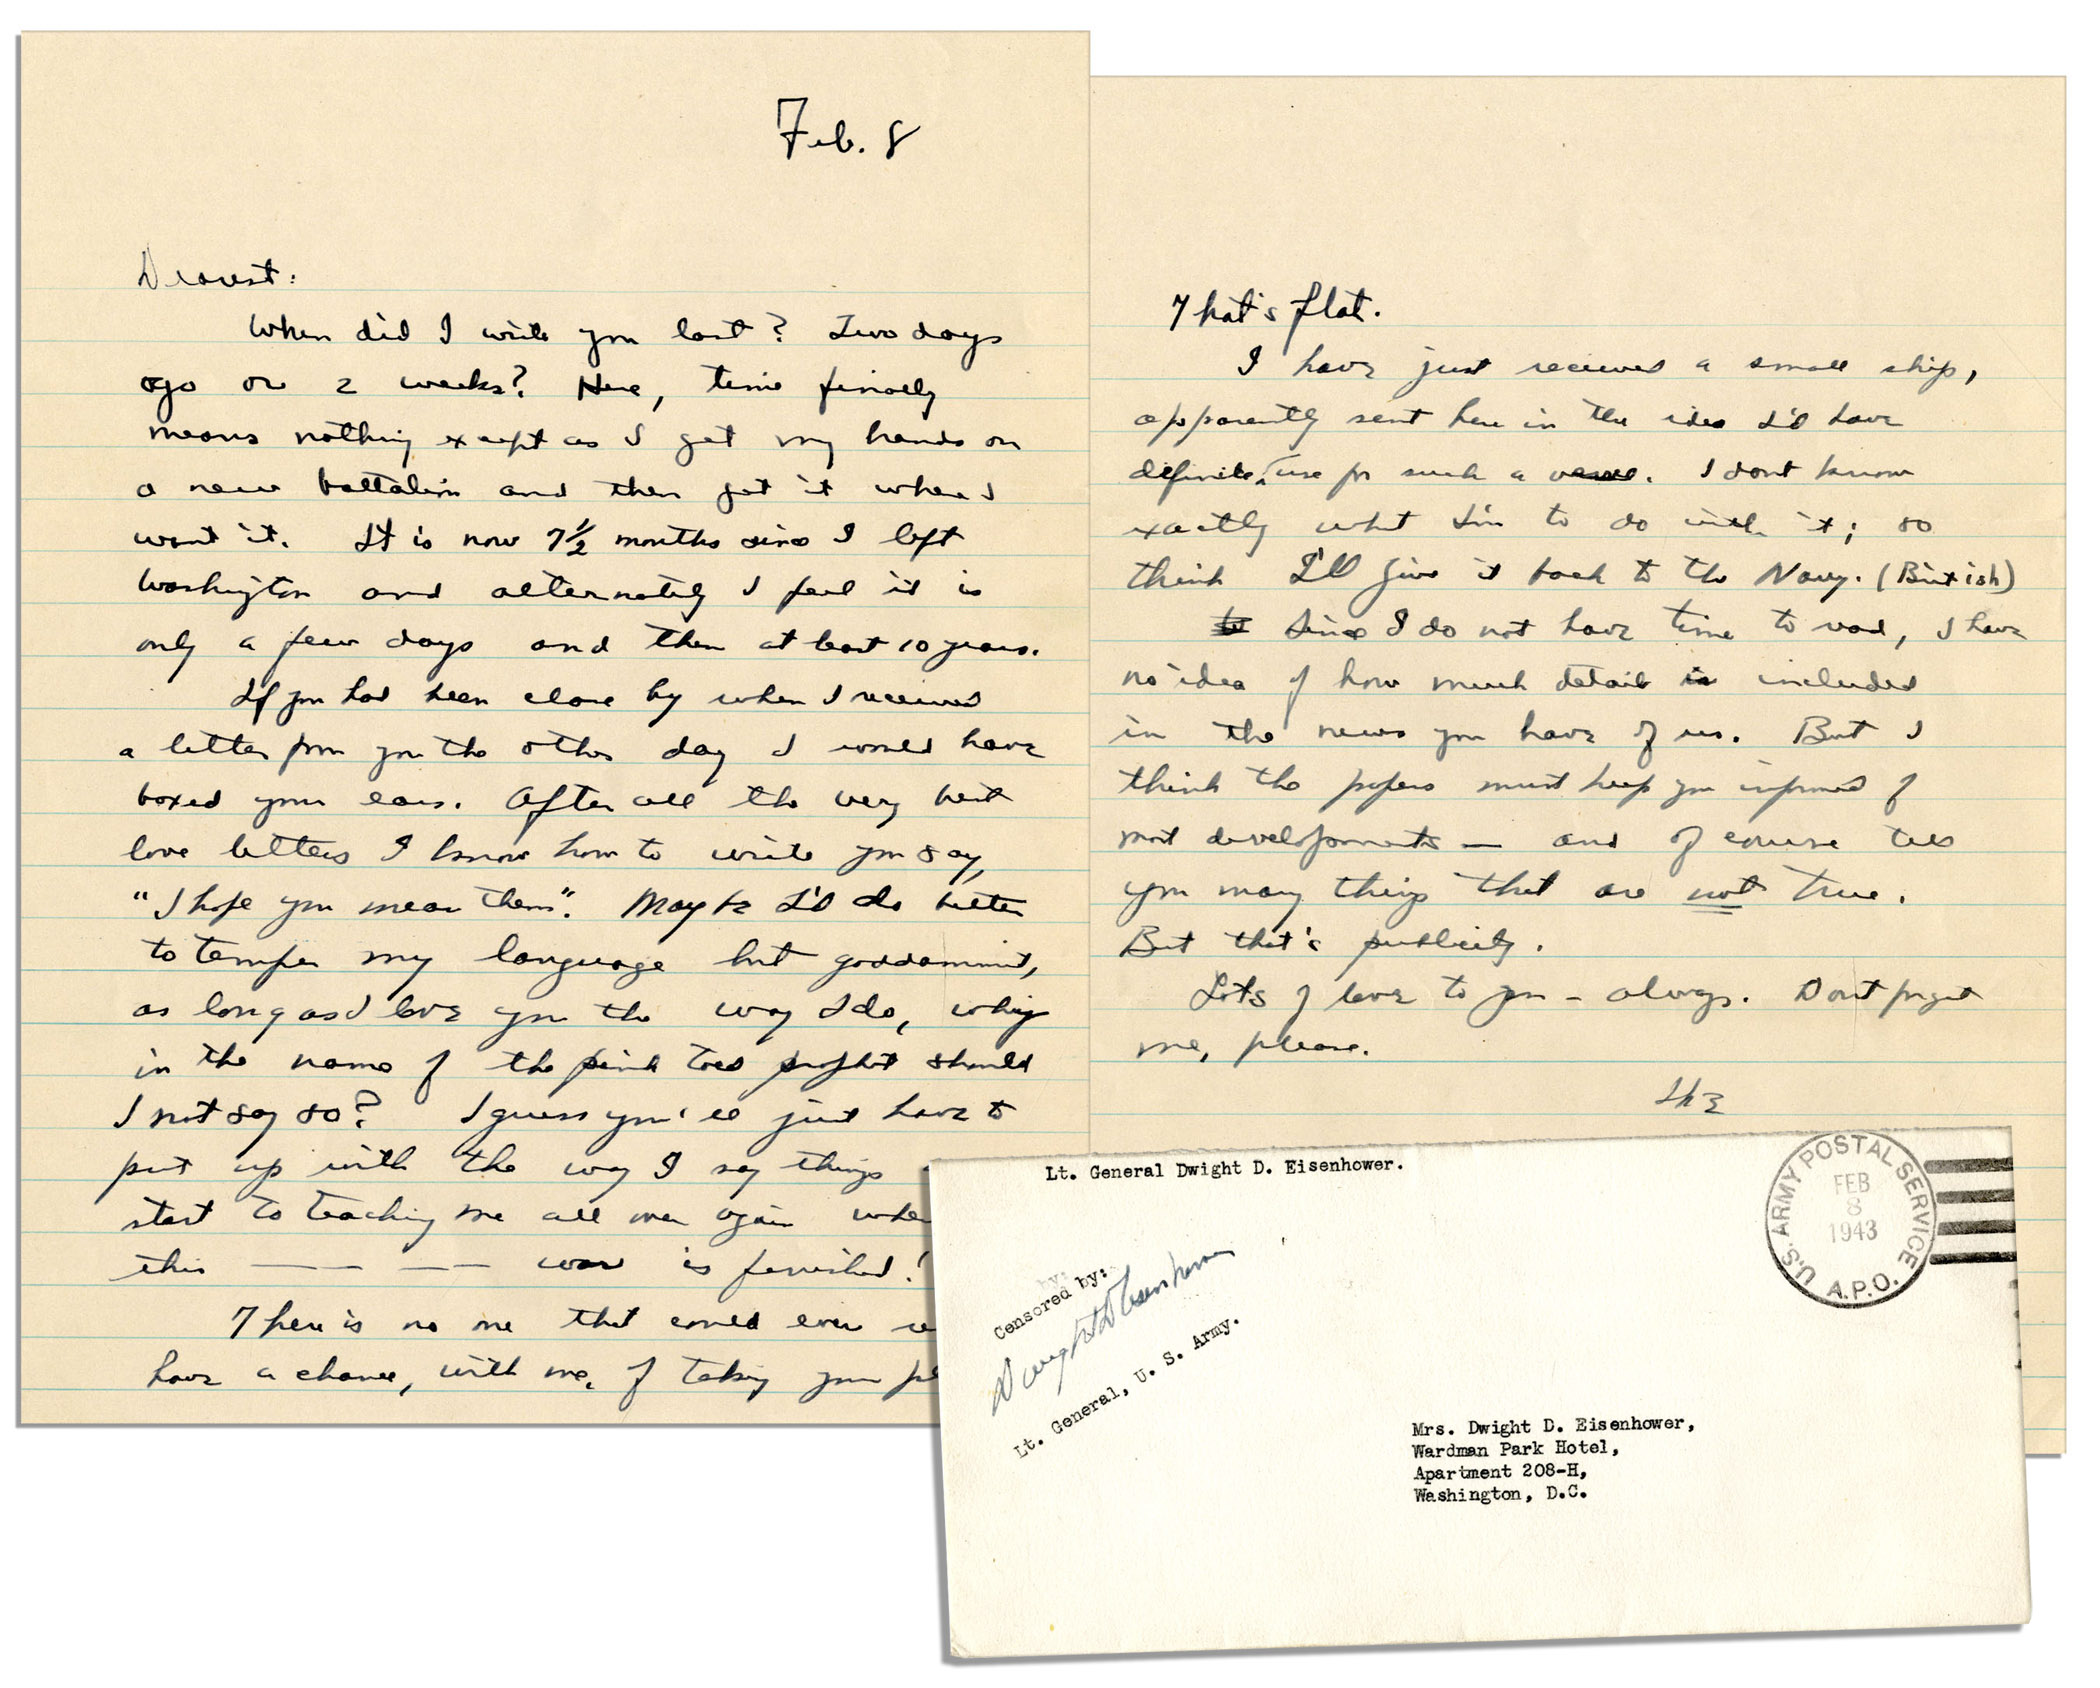 Feb. 8
Dearest:
When did I write you last? Two days
ago or 2 weeks? Here, time finally
means nothing except as I get my hands on
a new battalion and then get it where I
want it. It is now 7½ months since I left
Washington and alternately I feel it is
only a few days and then at least 10 years.
If you had been close by when I received
a letter from you the other day I would have
boxed your ears. After all the very best
love letters I know how to write you say,
"I hope you mean them". Maybe I'd do better
to temper my language but goddammit,
as long as I love you the way I do, why
in the name of the pink toed prophet should
I not say so? I guess you'll just have to
put up with the way I say things
start to teaching me all over again when
this — — — — war is finished!
There is no one that could ever
have a chance, with me, of taking your
That's flat.
I have just received a small ship,
apparently sent here in the idea I'd have
definite use for such a . I dont know
exactly what I'm to do with it; so
think I'll give it back to the Navy. (British)
Since I do not have time to read, I have
no idea of how much detail is included
in the news you have of us. But I
think the papers must keep you informed of
most developments — and of course tell
you many things that are not true.
But that's publicity.
Lots of love to you - always. Dont forget
me, please.
Ike
Lt. General Dwight D. Eisenhower.
U.S. ARMY POSTAL SERVICE
FEB
8
1943
A.P.O.
by:
Censored by:
Dwight D Eisenhower
Lt. General, U. S. Army.
Mrs. Dwight D. Eisenhower,
Wardman Park Hotel,
Apartment 208-H,
Washington, D.C.